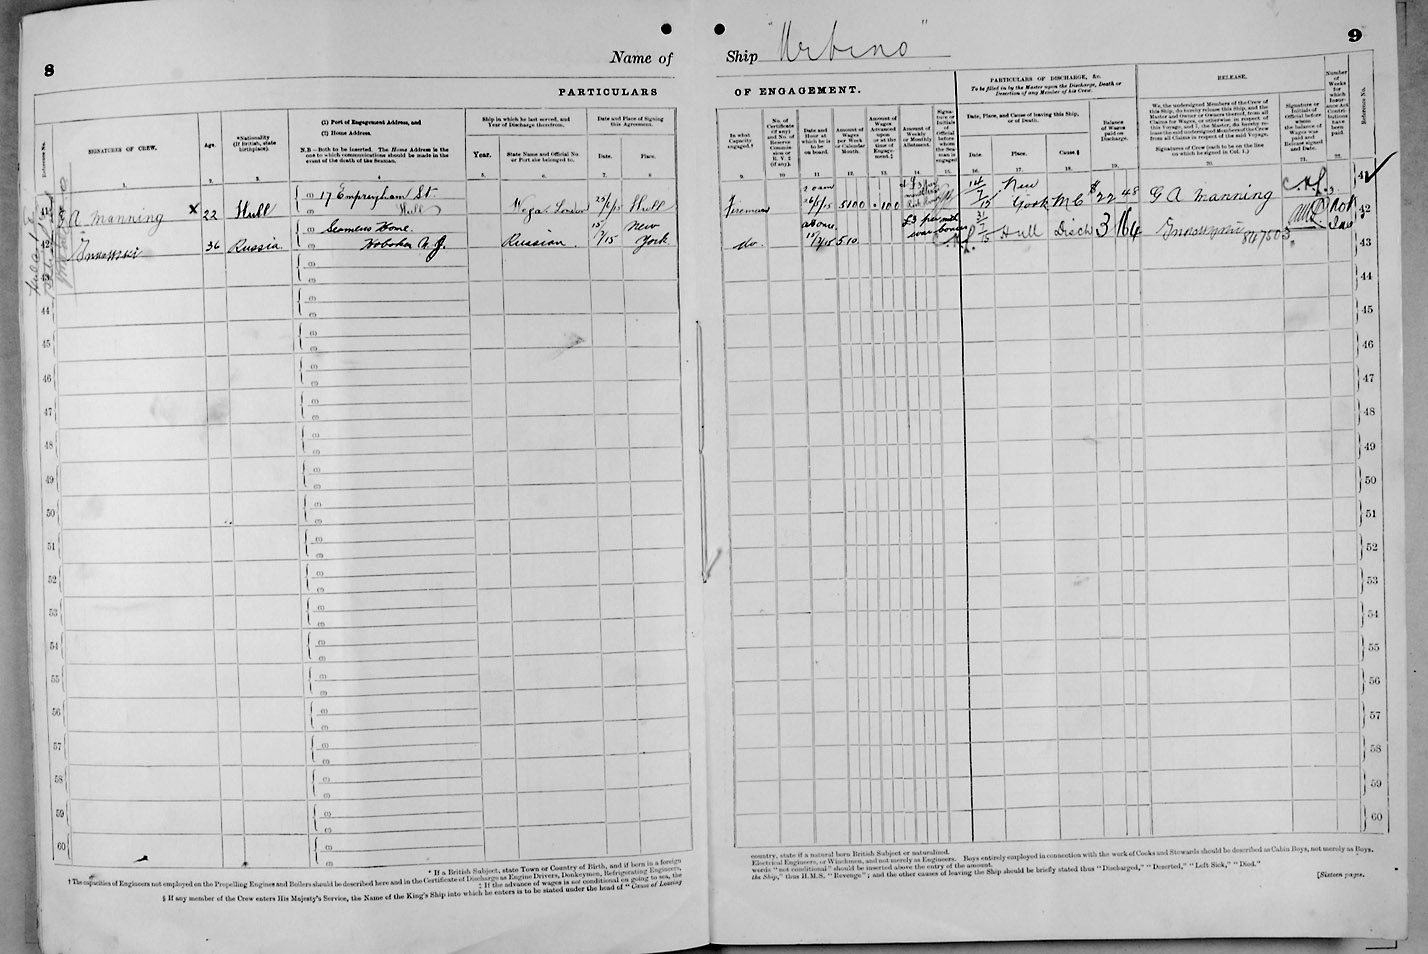 8
Name of
Ship "Urbino"
9
PARTICULARS
OF ENGAGEMENT.
PARTICULARS OF DISCHARGE, &c.
To be filled in by the Master upon the Discharge, Death or
Desertion of any Member of his Crew.
RELEASE.
Reference No.
SIGNATURES OF CREW.
Age.
*Nationality
(If British, state
birthplace).
(1) Port of Engagement Address, and
(2) Home Address.
N.B.—Both to be inserted. The Home Address is the
one to which communications should be made in the
event of the death of the Seaman.
Ship in which he last served, and
Year of Discharge therefrom.
Year.
State Name and Official No
or Port she belonged to.
Date and Place of Signing
this Agreement.
Date.
Place.
In what
Capacity
engaged.†
No. of
Certificate
(if any)
and No. of
Reserve
Commis-
sion or
R. V. 2
(if any).
Date and
Hour at
which he is
to be
on board.
Amount of
Wages
per Week
or Calendar
Month.
Amount of
Wages
Advanced
upon
or at the
time of
Engage-
ment.‡
Amount of
Weekly
or Monthly
Allotment.
Signa-
ture or
Initials
of
Official
before
whom
the Sea-
man is
engaged
Date, Place, and Cause of leaving this Ship,
or of Death.
Date.
Place.
Cause.§
Balance
of Wages
paid on
Discharge.
We, the undersigned Members of the Crew of
this Ship, do hereby release this Ship, and the
Master and Owner or Owners thereof, from all
Claims for Wages, or otherwise in respect of
this Voyage, and I, the Master, do hereby re-
lease the undersigned Members of the Crew
from all Claims in respect of the said Voyage.
Signatures of Crew (each to be on the line
on which he signed in Col. 1.)
Signature or
Initials of
Official before
whom
the balance of
Wages was
paid and
Release signed
and Date.
Number
of
Weeks
for
which
Insur-
ance Act
Contri-
butions
have
been
paid
Reference No.
1. 2. 3. 4. 5. 6. 7. 8. 9. 10. 11. 12. 13. 14. 15. 16. 17. 18. 19. 20. 21. 22.
G A Manning X 22 Hull 17 Empringham St Hull Vega London Hull Fireman 5100 100 New York NC $ 22 48 G A Manning
36 Russia Seamens Home Hoboken N. J. Russian 15/7/15 New York do at once 15/7/15 510 £3 per mth war bonus 31/7/15 Hull Disch 3 16 4 847503
41
42
42
43
44
44
45
45
46
46
47
47
48
48
49
49
50
50
51
51
52
52
53
53
54
54
55
55
56
56
57
57
58
58
59
59
60
60
* If a British Subject, state Town or Country of Birth, and if born in a foreign
country, state if a natural born British Subject or naturalized.
† The capacities of Engineers not employed on the Propelling Engines and Boilers should be described here and in the Certificate of Discharge as Engine Drivers, Donkeymen, Refrigerating Engineers,
Electrical Engineers, or Winchmen, and not merely as Engineers. Boys entirely employed in connection with the work of Cooks and Stewards should be described as Cabin Boys, not merely as Boys.
‡ If the advance of wages is not conditional on going to sea, the
words "not conditional" should be inserted above the entry of the amount.
§ If any member of the Crew enters His Majesty's Service, the Name of the King's Ship into which he enters is to be stated under the head of "Cause of Leaving
the Ship," thus H.M.S. "Revenge"; and the other causes of leaving the Ship should be briefly stated thus "Discharged," "Deserted," "Left Sick," "Died."
[Sixteen pages.